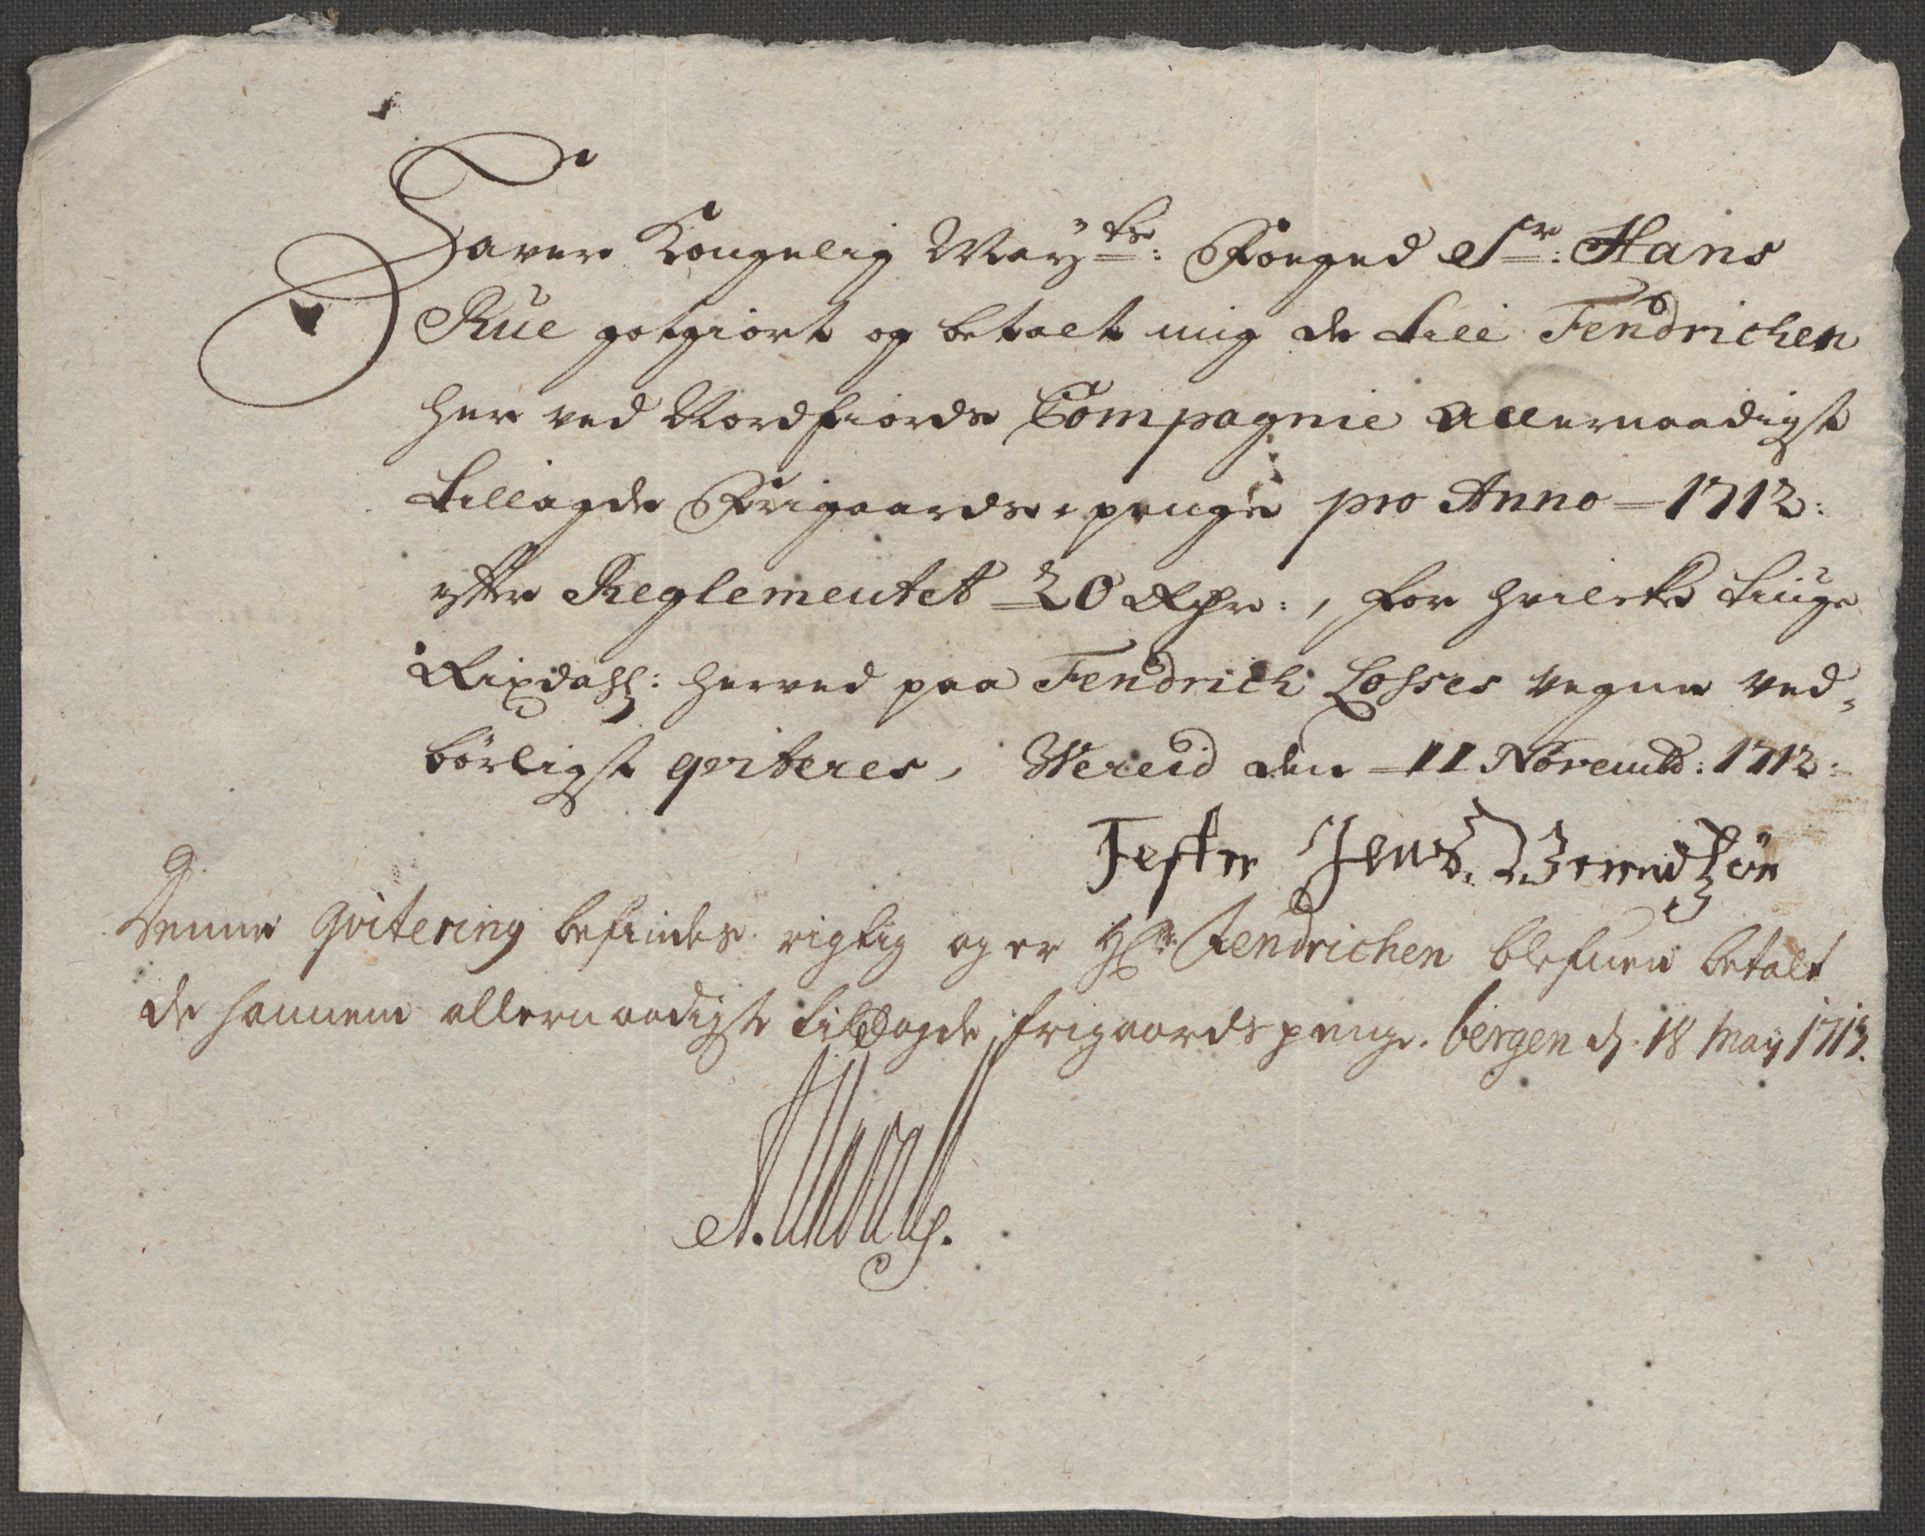 Haver Kongelig May:ts: Fouged Sr: Hans
Rue gotgiort og betalt mig de till Fendrichen
her ved Nordfiords Compagnie allernaadigst
tillagde Frigaards penge pro Anno 1712:
efter Reglementet 20 Rdr:, for hvilcke tiuge
Rixdahl: herved paa Fendrich Losses vegne ved,
børligst qviteres, Wereid den 11 Novembr: 1712:
Tester Jens Berendsøn
Denne qvitering befindes rigtig og er Hr: Fendrichen blefuen betalt
de hannem allernaadigste tillagde frigaardspenge. bergen d. 18 May 1713.